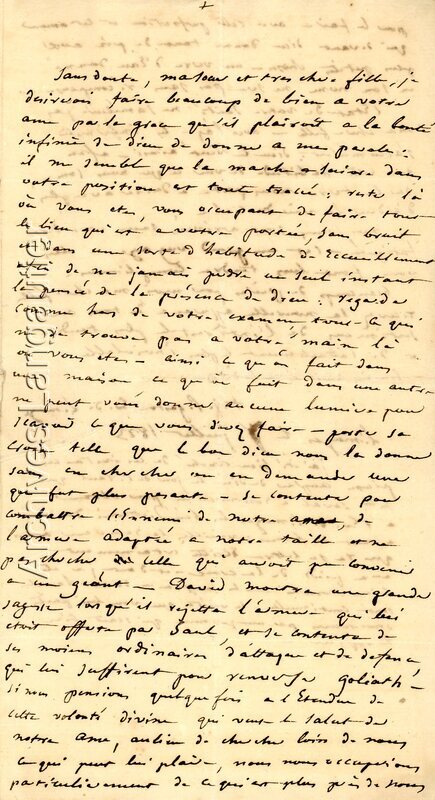 +
Sans doute, ma soeur et tres chere fille, je
desirerois faire beaucoup de bien a votre
ame par la grace qu'il plairoit a la bonté
infinie de dieu de donner a mes paroles :
il me semble que la marche a suivre dans
votre position est toute tracée : rester là
où vous etes, vous occupant de faire tout
le bien qui est a votre portée, sans bruit
et dans une sorte d'habitude de recueillement
de ne jamais perdre un seul instant
la pensée de la présence de dieu : regarder
comme hors de votre examen tout ce qui
ne se trouve pas a votre main là
où vous etes - ainsi ce qu'on fait dans
une maison ce qui se fait dans une autre
ne peut vous donner aucune lumiere pour
scavoir ce que vous devez faire - porter sa
croix telle que le bon dieu nous la donne
sans en chercher ou en demander une
qui fut plus pesante - se contenter pour
combattre l'Ennemi de notre ame, de
l'armure adaptée a notre taille et ne
pas chercher celle qui auroit pu convenir
a un géant - David montra une grande
sagesse lorsqu'il rejetta l'armure qui lui
etoit offerte par Saul, et se contenta de
ses moiens ordinaires d'attaque et de defense,
qui lui suffirent pour renverser goliath -
si nous pensions quelquefois a l'Etendue de
cette volonté divine qui veut le salut de
notre ame, au lieu de chercher loin de nous
ce qui peut lui plaire, nous nous occuperions
particulierement de ce qui est plus près de nous